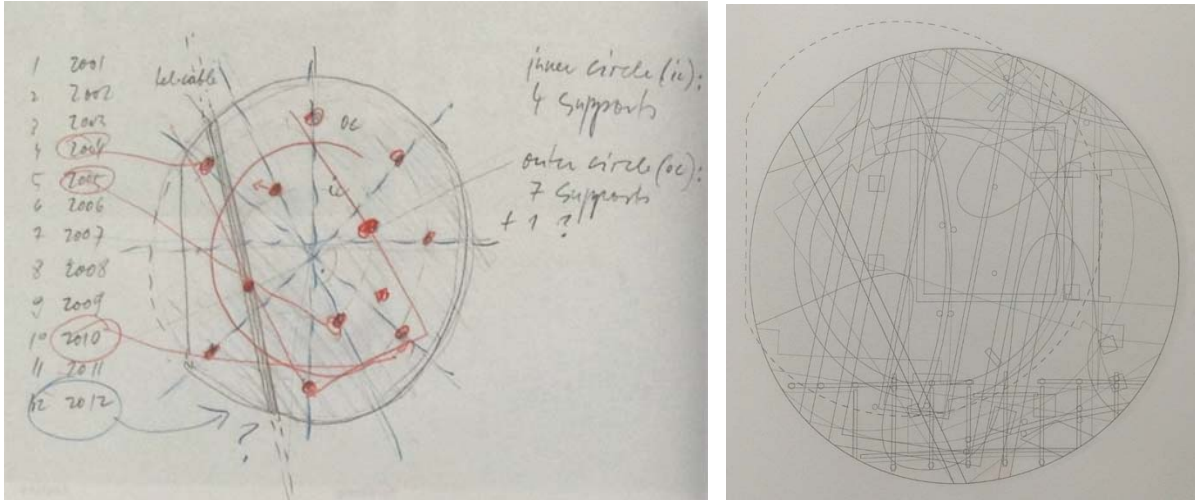 1 2001
2 2002
3 2003
4 2004
5 2005
6 2006
7 2007
8 2008
9 2009
10 2010
11 2011
12 2012
tel-cable
oc
ic
?
inner circle (ic):
4 supports
outer circle (oc):
7 supports
+ 1 ?